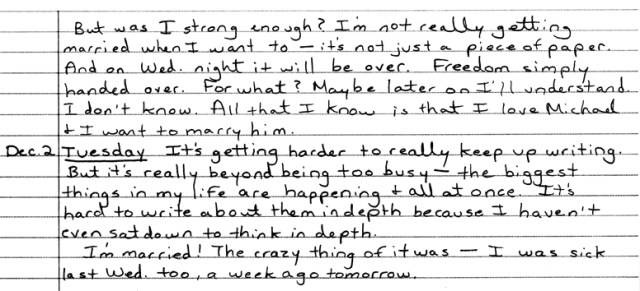 But was I strong enough? I'm not really getting
married when I want to — it's not just a piece of paper.
And on Wed. night it will be over. Freedom simply
handed over. For what? Maybe later on I'll understand.
I don't know. All that I know is that I love Michael
+ I want to marry him.
Dec. 2 Tuesday It's getting harder to really keep up writing.
But it's really beyond being too busy — the biggest
things in my life are happening + all at once. It's
hard to write about them in depth because I haven't
even sat down to think in depth.
I'm married! The crazy thing of it was — I was sick
last Wed. too, a week ago tomorrow.